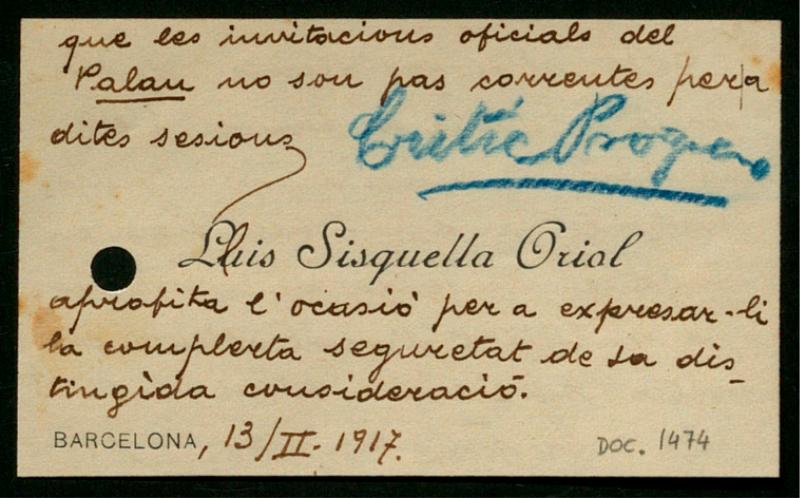 que les invitacions oficials del
Palau no son pas correntes per a
dites sesions
Critic Progreso
Lluis Sisquella Oriol
aprofita l'ocasió per a expresar-li
la complerta seguretat de sa dis-
tingida consideració.
BARCELONA, 13/II-1917.
DOC. 1474